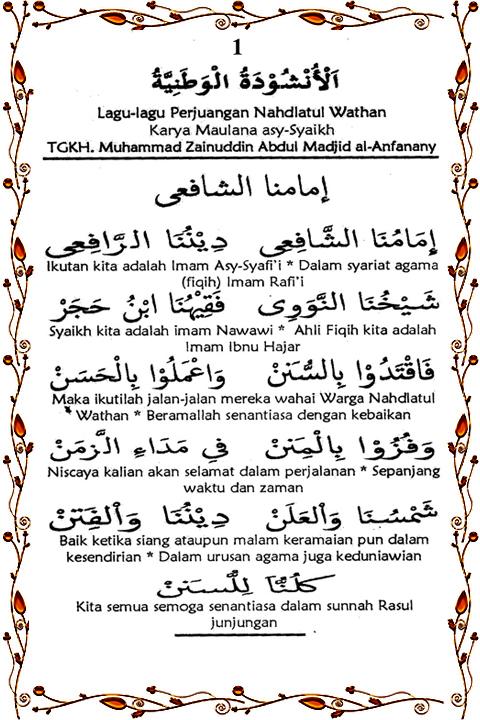 1
اَلْأُنْشُوْدَةُ الْوَطَنِيَّةُ
Lagu-lagu Perjuangan Nahdlatul Wathan
Karya Maulana asy-Syaikh
TGKH. Muhammad Zainuddin Abdul Madjid al-Anfanany
إمامنا الشافعى
إِمَامُنَا الشَّافِعِى دِيْنُنَا الرَّافِعِى
Ikutan kita adalah Imam Asy-Syafi'i * Dalam syariat agama
(fiqih) Imam Rafi'i
شَيْخُنَا النَّوَوِى فَقِيْهُنَا ابْنُ حَجَرْ
Syaikh kita adalah imam Nawawi * Ahli Fiqih kita adalah
Imam Ibnu Hajar
فَاقْتَدُوْا بِالسُّنَنْ وَاعْمَلُوْا بِالْحَسَنْ
Maka ikutilah jalan-jalan mereka wahai Warga Nahdlatul
Wathan * Beramallah senantiasa dengan kebaikan
وَفُزُوْا بِالْمِنَنْ فِي مَدَاءِ الزَّمَنْ
Niscaya kalian akan selamat dalam perjalanan * Sepanjang
waktu dan zaman
شَمْسُنَا وَالْعَلَنْ دِيْنُنَا وَالْفِتَنْ
Baik ketika siang ataupun malam keramaian pun dalam
kesendirian * Dalam urusan agama juga keduniawian
كُلُّنَا لِلسُّنَنْ
Kita semua semoga senantiasa dalam sunnah Rasul
junjungan